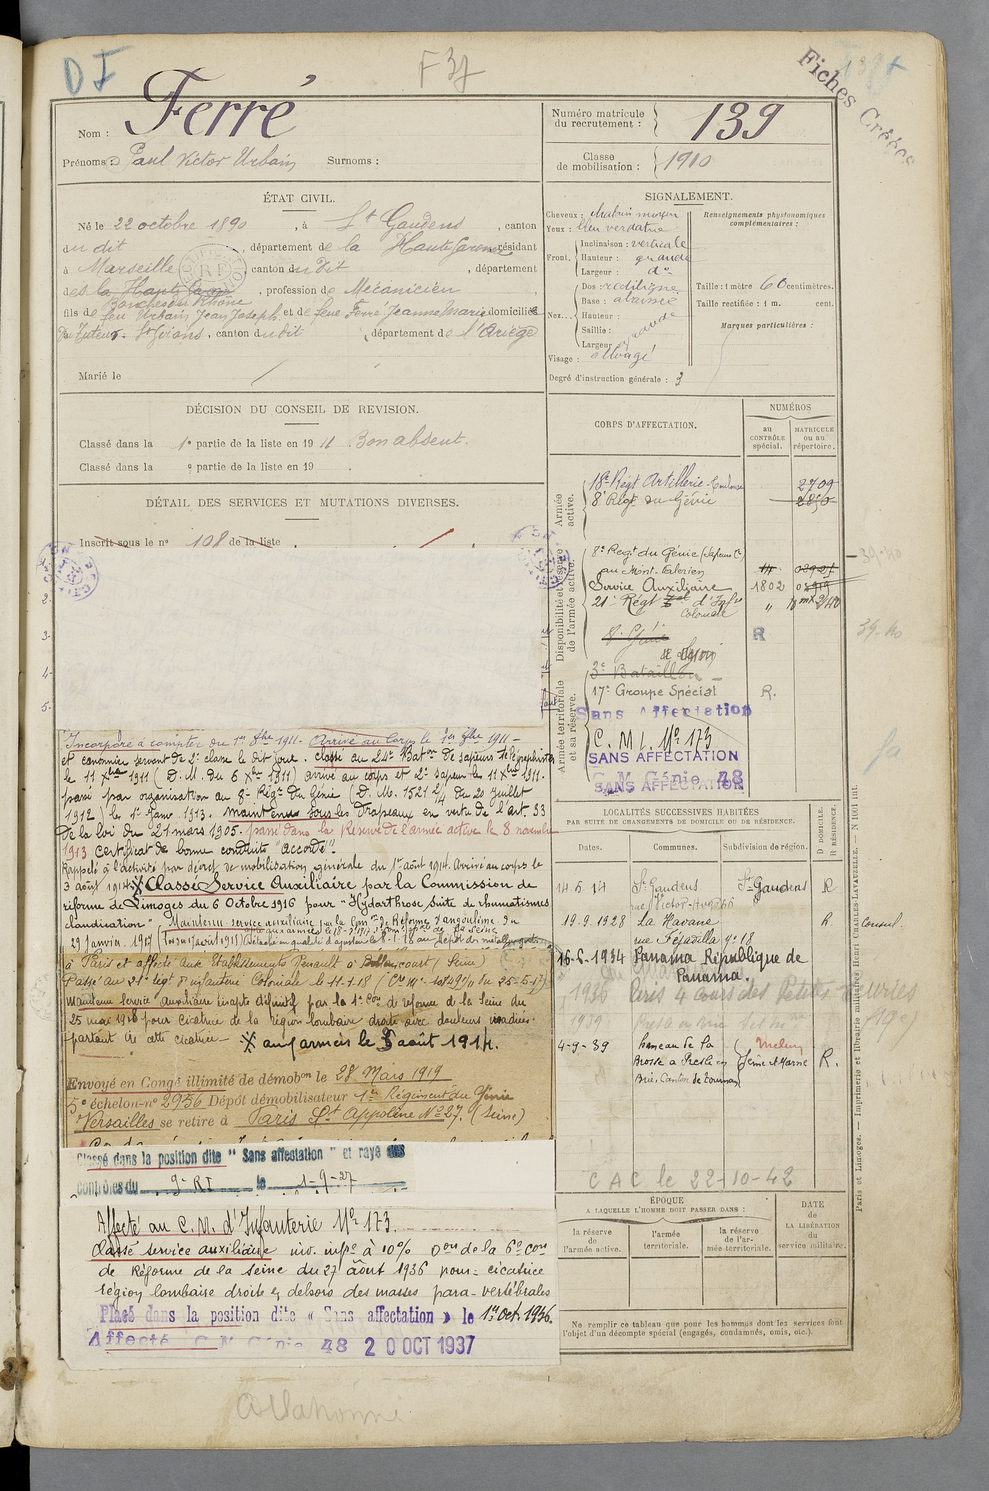 DI
F 37
Fiches Créées
Nom : Ferré
Prénoms : Paul Victor Urbain Surnoms :
Numéro matricule du recrutement : 139
Classe de mobilisation : 1910
ÉTAT CIVIL.
Né le 22 octobre 1890, à St Gaudens, canton
du dit, département de la Haute Garonne, résidant
à Marseille, canton du dit, département
des Bouches du Rhône, profession de Mécanicien
fils de feu Urbain Jean Joseph et de feue Ferre Jeanne Marie domiciliés
, canton du dit, département de l'Ariège
Marié le
SIGNALEMENT.
Cheveux : chatain moyen
Yeux : bleu verdatre
Front. Inclinaison : verticale
Hauteur : grande
Largeur : do
Nez. Dos : rectiligne
Base : abaissée
Hauteur :
Saillie :
Largeur :
grande
Visage : allongé
Degré d'instruction générale : 3
Renseignements physionomiques complémentaires :
Taille : 1 mètre 60 centimètres.
Taille rectifiée : 1 m. cent.
Marques particulières :
DÉCISION DU CONSEIL DE REVISION.
Classé dans la 1e partie de la liste en 1911 Bon absent.
Classé dans la e partie de la liste en 19 .
DÉTAIL DES SERVICES ET MUTATIONS DIVERSES.
Inscrit sous le no 108 de la liste
2.
3.
4.
5.
Incorporé à compter du 1er 8bre 1911. Arrivé au Corps le 1er 8bre 1911 -
et canonnier servant de 2e classe le dit jour. classé au 24e Baton de sapeurs télégraphistes
le 11 Xbre 1911 (D. M. du 6 Xbre 1911) arrivé au corps et 2e sapeur le 11 Xbre 1911.
passé par organisation au 8e Régt du Génie (D. M. 1521 2/4 du 20 juillet
1912) le 1er Janv. 1913. maintenu sous les Drapeaux en vertu de l'art. 33
de la loi du 21 mars 1905. passé dans la Réserve de l'armée active le 8 novembre
1913 Certificat de bonne conduite "accordé".
Rappelé à l'activité par décret de mobilisation générale du 1er août 1914. Arrivé au corps le
3 août 1914 X Classé Service Auxiliaire par la Commission de
réforme de Limoges du 6 Octobre 1916 pour "Hydarthrose suite de rhumatismes
claudication" Maintenu service auxiliaire par la Comon de Réforme d'angoulême du
29 Janvier 1917
à Paris et affecté aux Etablissements Renault à Billancourt (Seine)
Passé au 21e régt d'infanterie Coloniale le 11-1-18
maintenu service auxiliaire inapte définitif par la 1e Con de réforme de la Seine du
25 mai 1918 pour cicatrice de la région lombaire droite avec douleurs irradiées
partant de cette cicatrice - X aux armées le 5 août 1914.
Envoyé en Congé illimité de démobon le 28 Mars 1919
5e échelon-no 2956 Dépôt démobilisateur 1er Régiment du Génie
Versailles se retire à Paris St Appoline No 27. (Seine)
Classé dans la position dite " Sans affestation " et rayé des
contrôles du 9e RI le 1-9-27
Affecté au C. M. d'Infanterie No 173.
Classé service auxiliaire inv. infre à 10% Don de la 6e Con
de Réforme de la Seine du 27 août 1936 pour : cicatrice
région lombaire droite en dehors des masses para-vertébrales
Placé dans la position dite « Sans affectation » le 1er Oct. 1936.
Affecté C M Génie 48 20 OCT 1937
CORPS D'AFFECTATION.
NUMÉROS
au CONTRÔLE spécial.
MATRICULE ou au répertoire.
Armée active.
18e Régt Artillerie - Toulouse 2709
8e Régt du Génie
Disponibilité et réserve de l'armée active.
8e Regt du Génie (Sapeurs Ct)
au Mont-Valérien
Service Auxiliaire 1802
21e Régt d'Infie
Coloniale
8e Génie
R
Armée territoriale et sa réserve.
3e Bataillon
17e Groupe Spécial R.
Sans Affectation
C. M I. No 173
SANS AFFECTATION
C M Génie 48
SANS AFFECTATION
39-40
LOCALITÉS SUCCESSIVES HABITÉES
PAR SUITE DE CHANGEMENTS DE DOMICILE OU DE RÉSIDENCE.
Dates. Communes. Subdivision de région. D DOMICILE. R RÉSIDENCE.
14 5 14 St Gaudens St Gaudens R
rue Victor-Hugo
19-9-1928 La Havane R Consul.
16-5-1934 Panama République de
Panama.
1936 Paris 4 cours des Petites Ecuries
1939
4-9-39 hameau de la Melun
Brosse a Presles en Seine et Marne R.
Brie. Canton de Tournan
C A C le 22-10-42
ÉPOQUE
A LAQUELLE L'HOMME DOIT PASSER DANS :
la réserve de l'armée active.
l'armée territoriale.
la réserve de l'armée territoriale.
DATE de LA LIBÉRATION du service militaire.
Ne remplir ce tableau que pour les hommes dont les services font
l'objet d'un décompte spécial (engagés, condamnés, omis, etc.).
Paris et Limoges. — Imprimerie et librairie militaires Henri CHARLES-LAVAUZELLE. — N 1001 int.